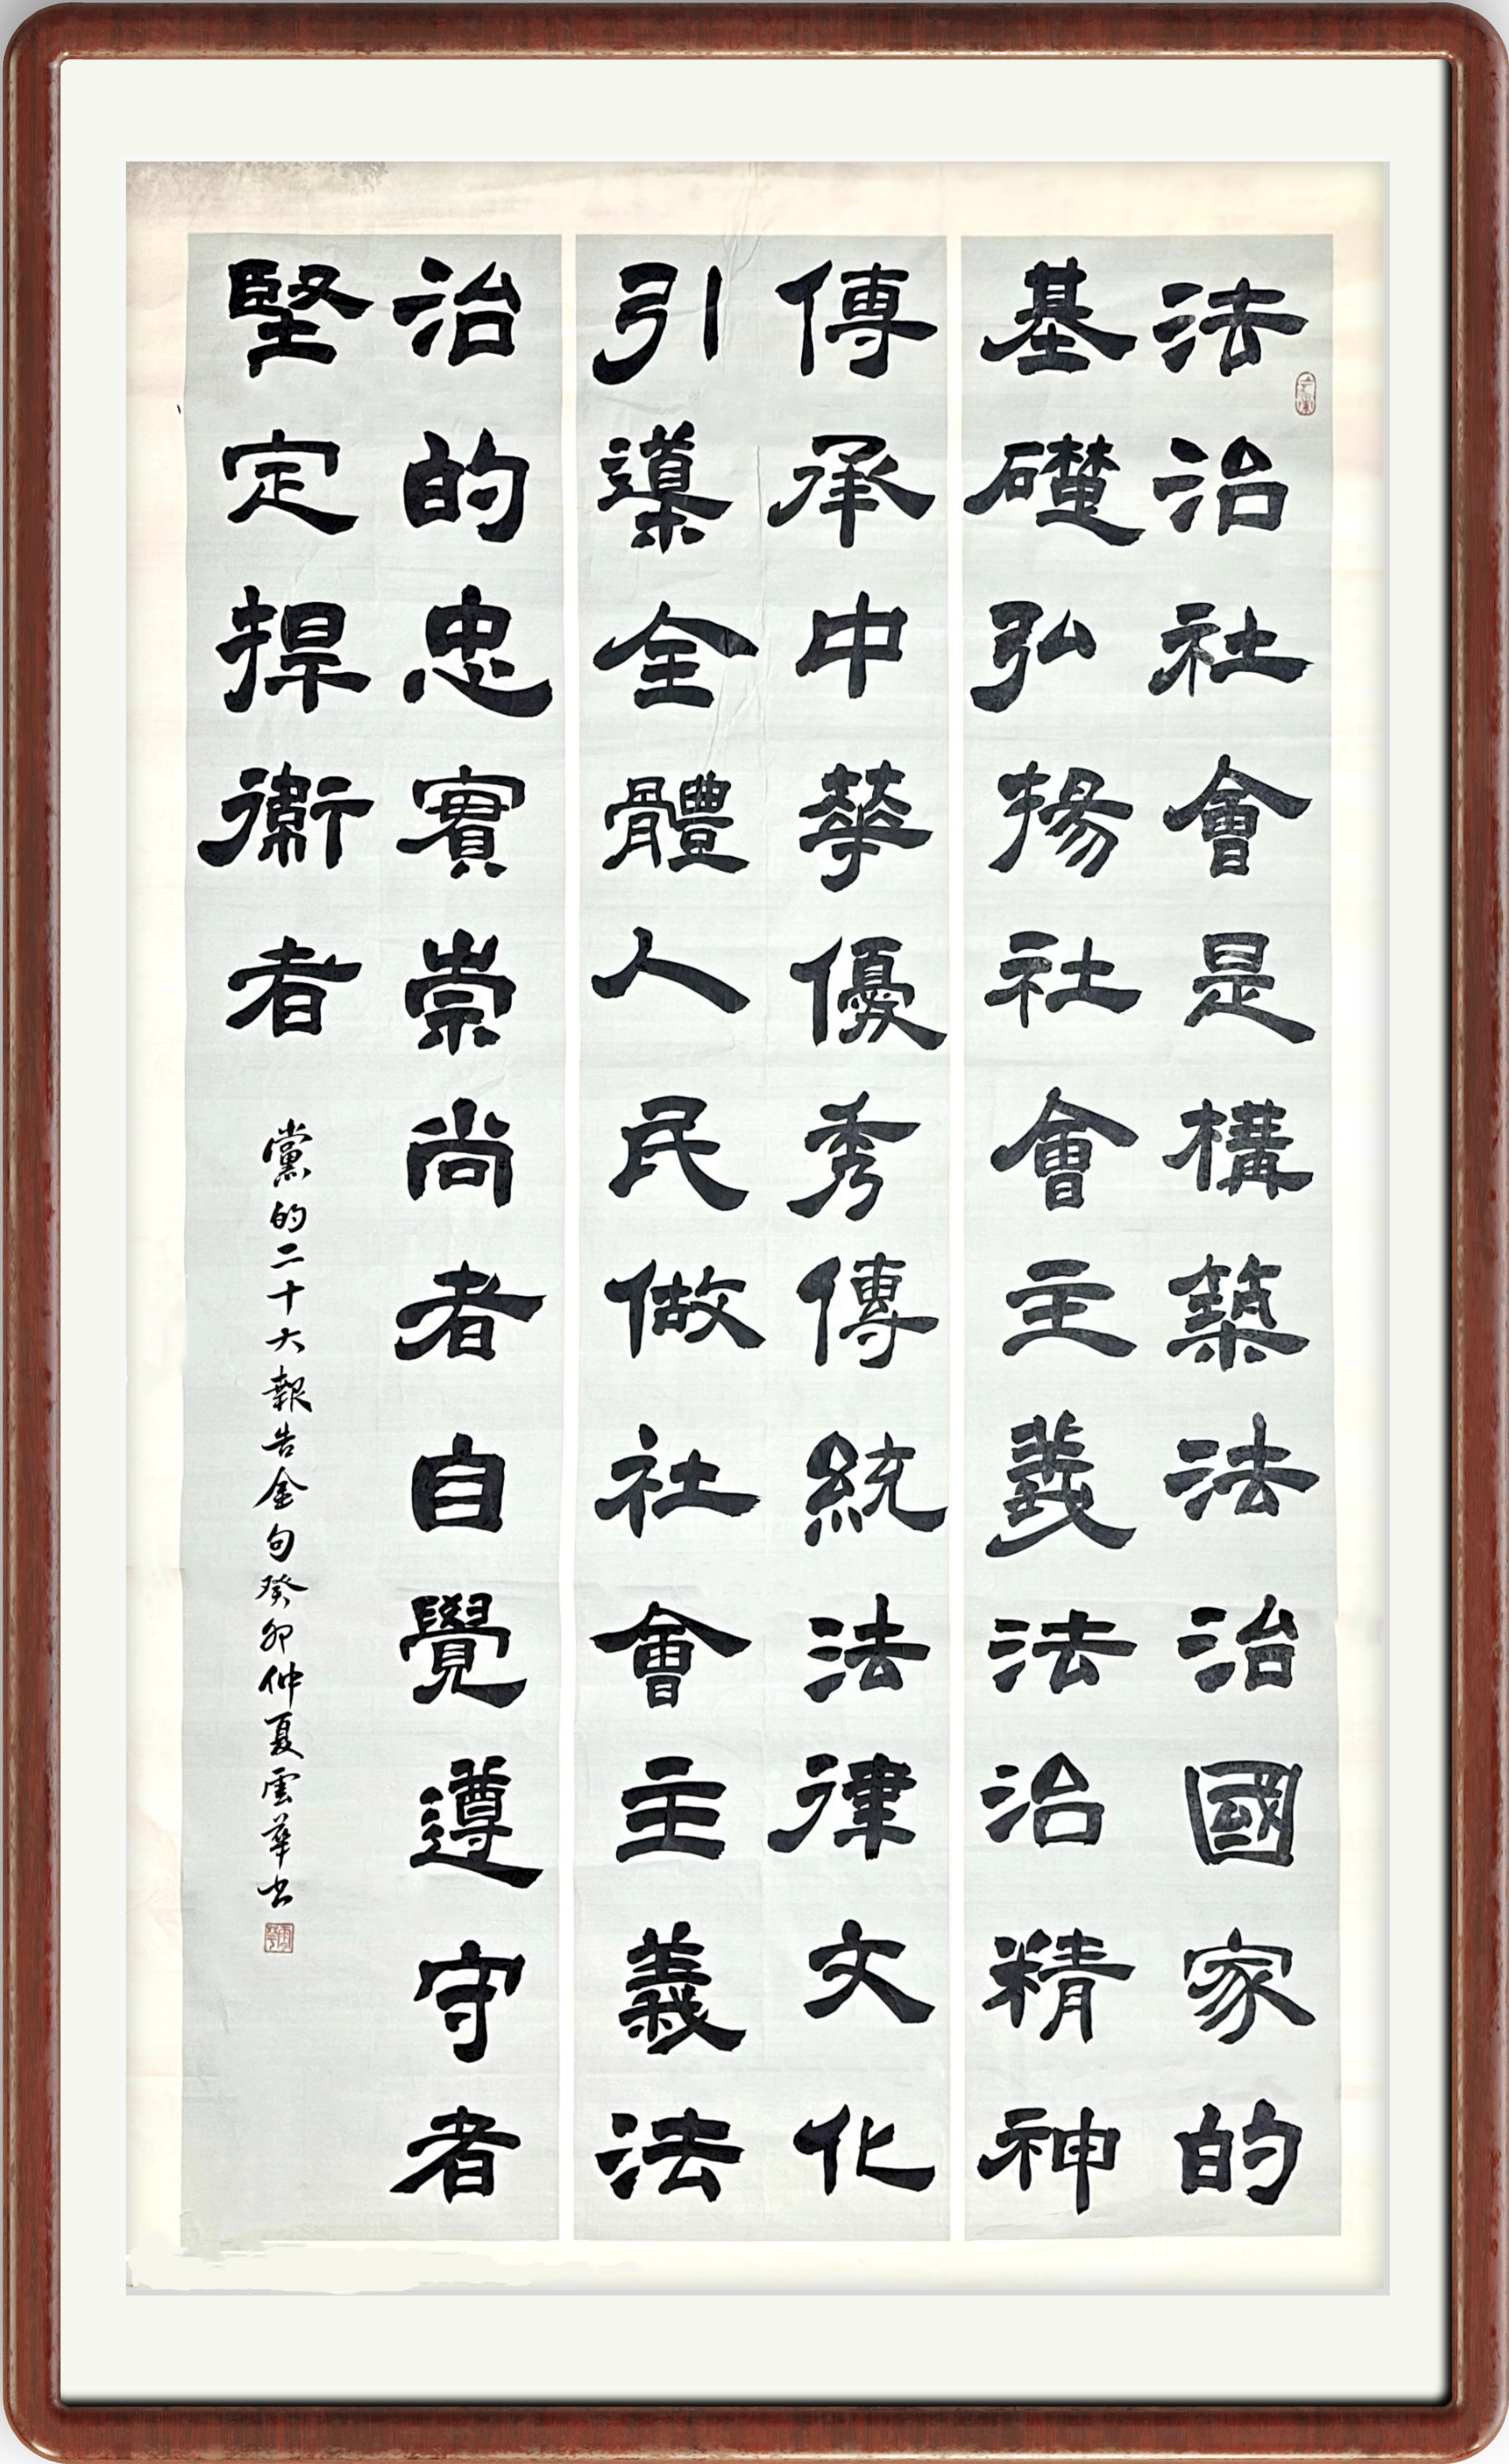 法治社會是構築法治國家的
基礎弘揚社會主義法治精神
傳承中華優秀傳統法律文化
引導全體人民做社會主義法
治的忠實崇尚者自覺遵守者
堅定捍衛者
黨的二十大報告金句癸卯仲夏雲華书